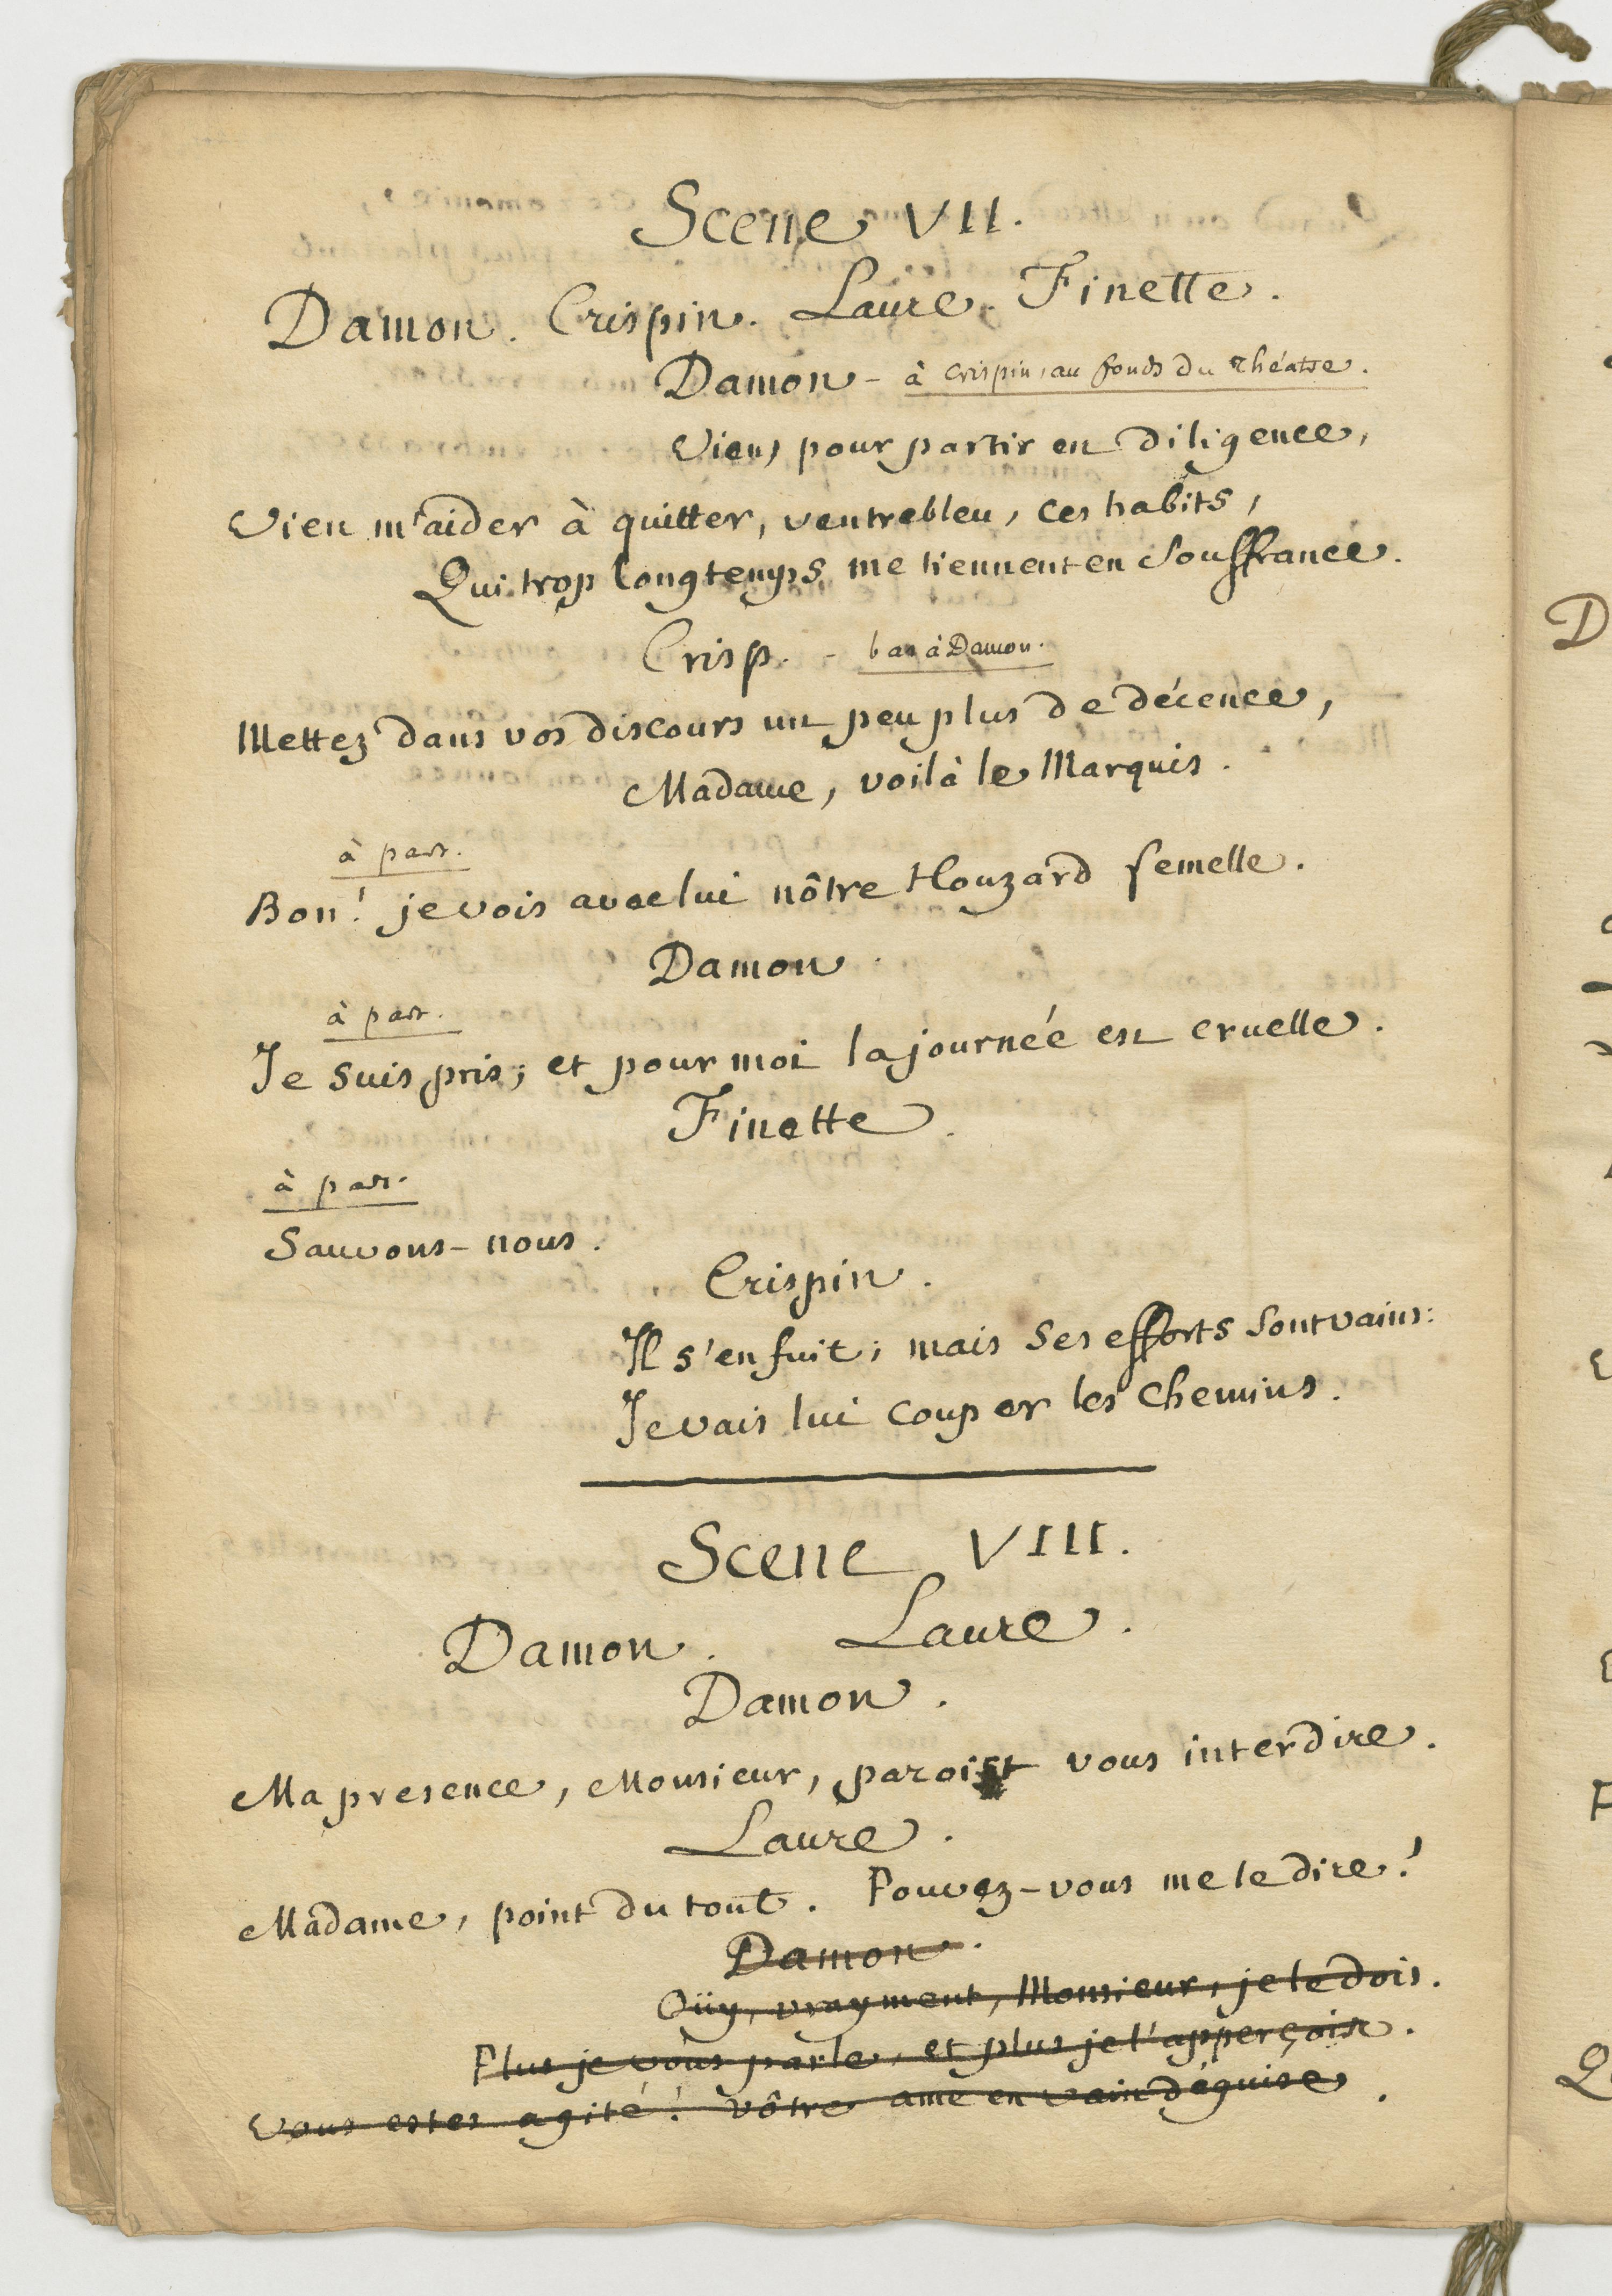 Scene VII.
Damon. Crispin. Laure. Finette.
Damon - à Crispin, au fonds du Théatre.
Viens pour partir en diligence,
Vien m'aider à quitter, ventrebleu, ces habits,
Qui trop longtemps me tiennent en Souffrance.
Crisp. - bas à Damon.
Mettez dans vos discours un peu plus de décence,
Madame, voilà le Marquis.
à part.
Bon! je vois avec lui nôtre Houzard femelle.
Damon.
à part.
Je suis pris; et pour moi la journée est cruelle.
Finette.
à part.
Sauvons-nous.
Crispin.
Il s'enfuit; mais Ses efforts Sont vains:
Je vais lui couper les chemins.
Scene VIII.
Damon. Laure.
Damon.
Ma presence, Monsieur, paroist vous interdire.
Laure.
Madame, point du tout. Pouvez-vous me le dire!
Damon.
Oüy, vrayment, Monsieur, je le dois.
Plus je vous parle, et plus je l'apperçois.
Vous estes agité! vôtre ame en vain déguise.
D